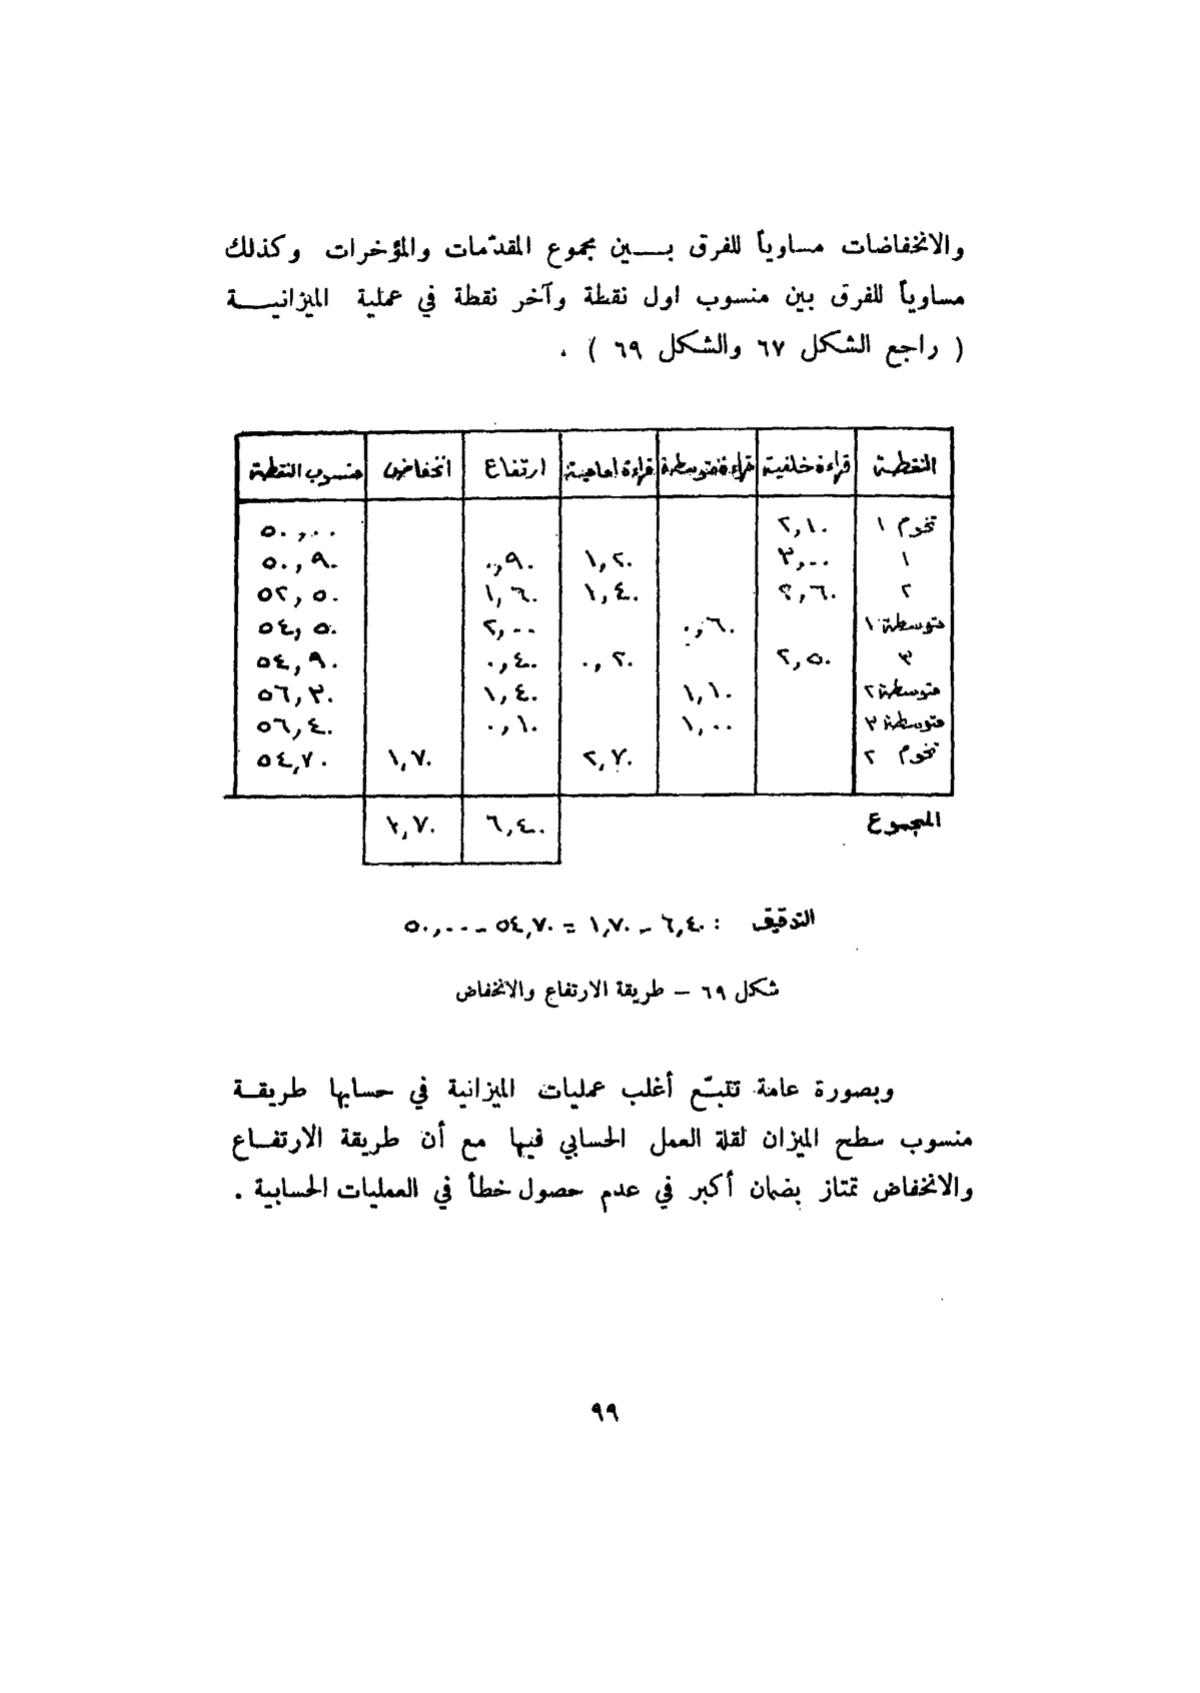 والانخفاضات مساوياً للفرق بـــين مجموع المقدّمات والمؤخرات وكذلك
مساوياً للفرق بين منسوب اول نقطة وآخر نقطة في عملية الميزانيـــة
( راجع الشكل ٦٧ والشكل ٦٩ ) .
النقطة قراءة خلفية قراءة متوسطة قراءة امامية ارتفاع انخفاض منسوب النقطة
تخوم ١ ٢,١٠ ٥٠,٠٠
١ ٣,٠٠ ١,٢٠ ٠,٩٠ ٥٠,٩٠
٢ ٢,٦٠ ١,٤٠ ١,٦٠ ٥٢,٥٠
متوسطة ١ ٠,٦٠ ٢,٠٠ ٥٤,٥٠
٣ ٢,٥٠ ٠,٢٠ ٠,٤٠ ٥٤,٩٠
متوسطة ٢ ١,١٠ ١,٤٠ ٥٦,٣٠
متوسطة ٣ ١,٠٠ ٠,١٠ ٥٦,٤٠
تخوم ٢ ٢,٧٠ ١,٧٠ ٥٤,٧٠
المجموع ٦,٤٠ ١,٧٠
التدقيق : ٦,٤٠ - ١,٧٠ = ٥٤,٧٠ - ٥٠,٠٠
شكل ٦٩ – طريقة الارتفاع والانخفاض
وبصورة عامة تتبّع أغلب عمليات الميزانية في حسابها طريقـة
منسوب سطح الميزان لقلة العمل الحسابي فيها مع أن طريقة الارتفـاع
والانخفاض تمتاز بضمان أكبر في عدم حصول خطأ في العمليات الحسابية .
٩٩